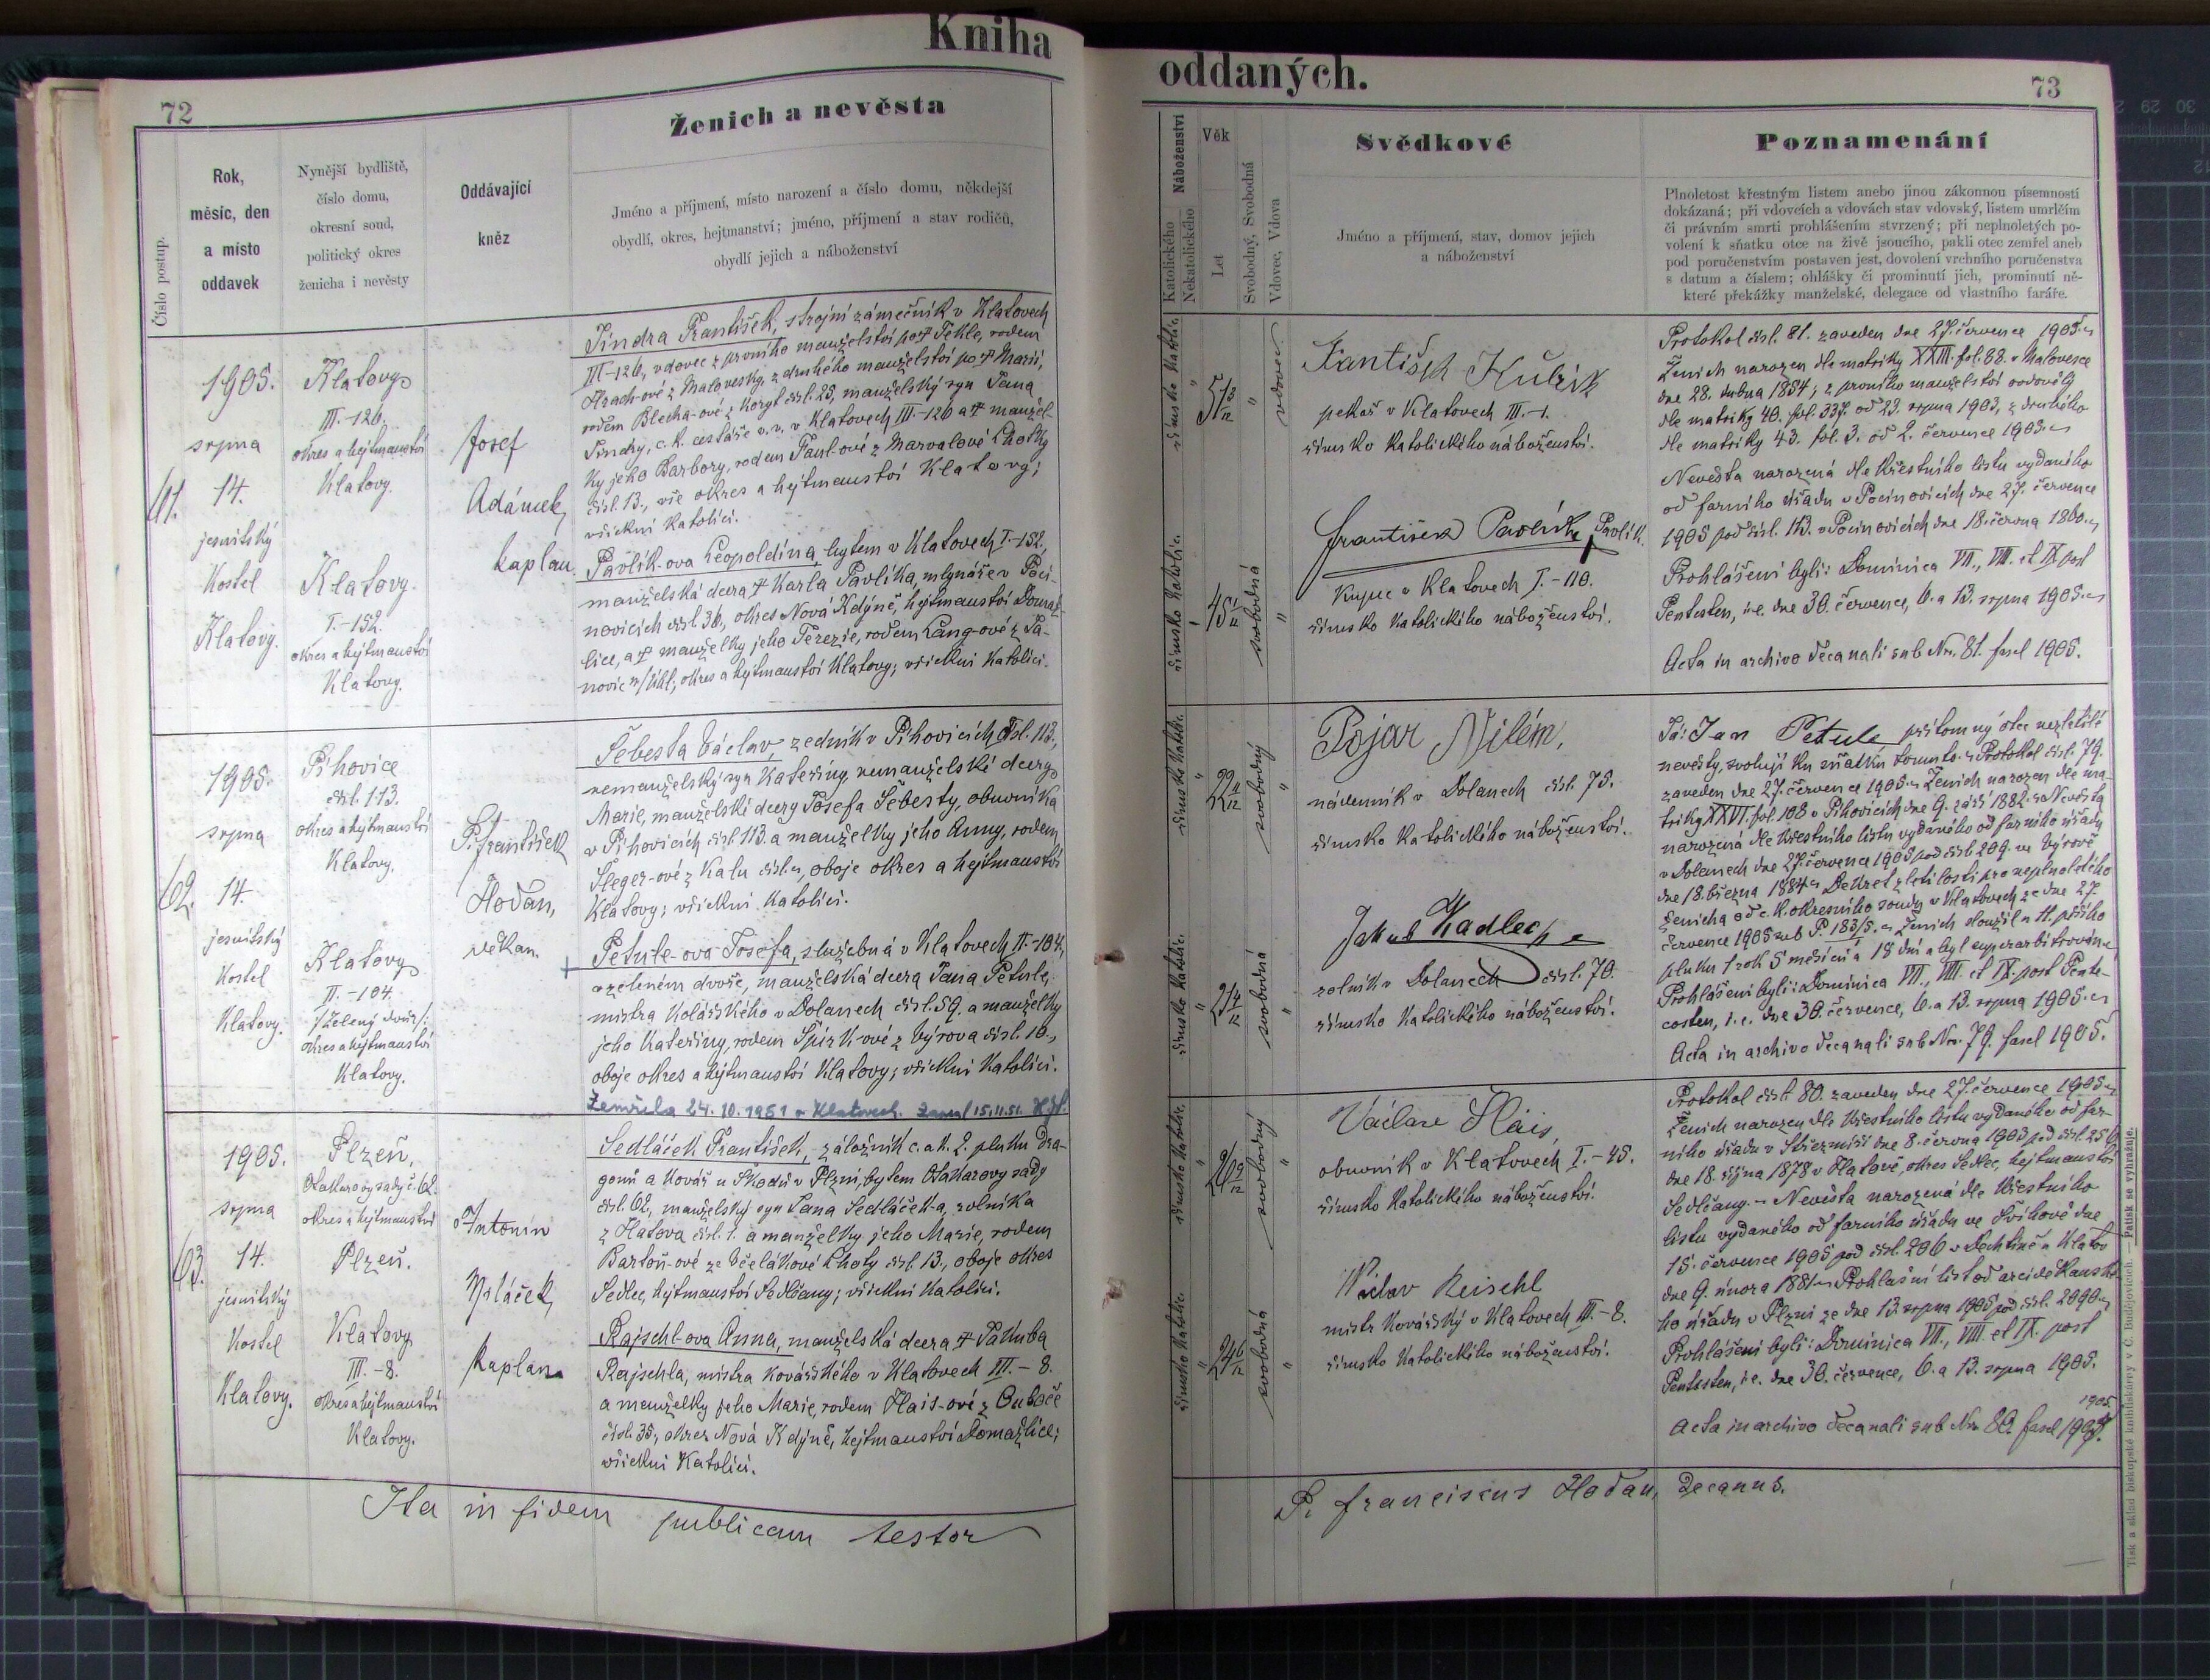 Kniha
72
Číslo postup.
Rok,
měsíc, den
a místo
oddavek
Nynější bydliště,
číslo domu,
okresní soud,
politický okres
ženicha i nevěsty
Oddávající
kněz
Ženich a nevěsta
Jméno a příjmení, místo narození a číslo domu, někdejší
obydlí, okres, hejtmanství; jméno, příjmení a stav rodičů,
obydlí jejich a náboženství
61.
1905.
srpna
14.
jesuitský
Kostel
Klatovy.
Klatovy
III.-126.
okres a hejtmanství
Klatovy.
Klatovy.
I.-152.
okres a hejtmanství
Klatovy.
Josef
Adámek,
kaplan.
Jindra František, strojní zámečník v Klatovech
III-126, vdovec z prvního manželství po † Tekle, rodem
Hrach-ové z Malovesky, z druhého manželství po † Marii,
rodem Blecha-ové z čísl. 25, manželský syn Jana
Jindry, c. k. cestáře v. v. v Klatovech III-126 a † manžel-
ky jeho Barbory, rodem Faul-ové z Lhotky
čísl. 13., vše okres a hejtmanství Klatovy;
všickni katolíci.
Pavlík-ova Leopoldina, bytem v Klatovech I.-152.,
manželská dcera † Karla Pavlíka, mlynáře v Poci-
novicích čísl 36, okres Nová Kdýně, hejtmanství Domaž-
lice, a † manželky jeho Terezie, rodem Lang-ové z Ja-
novic n/Úhl., okres a hejtmanství Klatovy; všickni katolíci.
62.
1905.
srpna
14.
jesuitský
Kostel
Klatovy.
Pihovice
čísl. 113.
okres a hejtmanství
Klatovy.
Klatovy
II.-104.
/:Zelený dvůr:/
okres a hejtmanství
Klatovy.
P. František
Hodan,
děkan.
Šebesta Václav, zedník v Pihovicích čísl. 113.,
nemanželský syn Kateřiny, nemanželské dcery
Marie, manželské dcery Josefa Šebesty, obuvníka
v Pihovicích čísl. 113 a manželky jeho Anny, rodem
Šleger-ové z Kalu čísl. oboje okres a hejtmanství
Klatovy; všickni katolíci.
Petule-ova Josefa, služebná v Klatovech II.-104,
v zeleném dvoře, manželská dcera Jana Petule,
mistra kolářského v Dolanech čísl. 59. a manželky
jeho Kateřiny, rodem Špirk-ové z Výrova čísl. 10.,
oboje okres a hejtmanství Klatovy; všickni katolíci.
Zemřela 24.10.1951 v Klatovech. 15.11.51.
63.
1905.
srpna
14.
jesuitský
Kostel
Klatovy.
Plzeň,
Otakarovy sady č. 62.
okres a hejtmanství
Plzeň.
Klatovy
III.-8.
okres a hejtmanství
Klatovy.
Antonín
kaplan.
Sedláček František, záložník c. a k. 2. pluku Dra-
gounů a kovář u Škodů v Plzni, bytem Otakarovy sady
čísl. 62, manželský syn Jana Sedláček-a, rolníka
z Hatova čísl. 1. a manželky jeho Marie, rodem
Bartoň-ové ze Včelákové Lhoty čísl. 13., oboje okres
Sedlec, hejtmanství Sedlčany; všickni katolíci.
Rajschl-ova Anna, manželská dcera † Jakuba
Rajschla, mistra kovářského v Klatovech III.-8.
a manželky jeho Marie, rodem Hais-ové z Ouboče
čísl. 35., okres Nová Kdýně, hejtmanství Domažlice;
všickni katolíci.
Ita in fidem publicam testor
oddaných.
73
Náboženství
Katolického
Nekatolického
Věk
Let
Svobodný, Svobodná
Vdovec, Vdova
Svědkové
Jméno a příjmení, stav, domov jejich
a náboženství
Poznamenání
Plnoletost křestným listem anebo jinou zákonnou písemností
dokázaná; při vdovcích a vdovách stav vdovský, listem umrlčím
či právním smrti prohlášením stvrzený; při neplnoletých po-
volení k sňatku otce na živě jsoucího, pakli otec zemřel aneb
pod poručenstvím postaven jest, dovolení vrchního poručenstva
s datum a číslem; ohlášky či prominutí jich, prominutí ně-
které překážky manželské, delegace od vlastního faráře.
římsko katolic.
51 3/12
vdovec
římsko katolic.
45 1/12
svobodná
pekař v Klatovech III.-1.
římsko katolického náboženství.
František Pavlík Pavlík.
kupec v Klatovech I.-110.
římsko katolického náboženství.
Protokol čísl. 81. zaveden dne 27. července 1905.
Ženich narozen dle matriky XXIII. fol. 68. v Malovesce
dne 28. dubna 1854; z prvního manželství ovdověl
dle matriky 40. fol. 337. od 23. srpna 1903, z druhého
dle matriky 43. fol. 3. od 2. července 1905.
Nevěsta narozená dle křestního listu vydaného
od farního úřadu v Pocinovicích dne 27. července
1905 pod čísl. 113. v Pocinovicích dne 18. června 1860.
Prohlášeni byli: Dominica VII., VIII. et IX post
Pentecosten, i.e. dne 30. července, 6. a 13. srpna 1905.
Acta in archivo decanali sub Nro. 81. fasc 1905.
římsko katolic.
22 11/12
svobodný
římsko katolic.
21 4/12
svobodná
Pojar Vilém,
nádenník v Dolanech čísl. 75.
římsko katolického náboženství.
Jakub Kadlec
rolník v Dolanech čísl. 70.
římsko katolického náboženství.
Já: Jan Petule přítomný otec nezletilé
nevěsty, svoluji ku sňatku tomuto. Protokol čísl. 79.
zaveden dne 27. července 1905. Ženich narozen dle ma-
triky XXVI. fol. 108 v Pihovicích dne 9. září 1882. Nevěsta
narozená dle křestního listu vydaného od farního úřadu
v Dolanech dne 27. července 1905 pod čísl. 209. ve Výrově
dne 18. března 1884. Dekret zletilosti pro neplnoletého
ženicha od c. k. okresního soudu v Klatovech ze dne 27.
července 1905 sub P 183/5. Ženich sloužil u 11. pěšího
pluku 1 rok 5 měsíců a 18 dní a byl superarbitrován.
Prohlášeni byli: Dominica VII., VIII. et IX. post Pente-
costen, i.e. dne 30. července, 6. a 13. srpna 1905.
Acta in archivo decanali sub Nro. 79. fasc 1905.
římsko katolic.
26 9/12
svobodný
římsko katolic.
24 6/12
svobodná
Václav Hais
obuvník v Klatovech I.-45.
římsko katolického náboženství.
Václav Reischl
mistr kovářský v Klatovech III.-8.
římsko katolického náboženství.
Protokol čísl. 80. zaveden dne 27. července 1905.
Ženich narozen dle křestního listu vydaného od far-
ního úřadu v Střezimíři dne 8. června 1903 pod čísl. 256
dne 18. října 1878 v Hatově, okres Sedlec, hejtmanství
Sedlčany. – Nevěsta narozená dle křestního
listu vydaného od farního úřadu ve Švihově dne
15. července 1905 pod čísl. 206 v Dechtíně u Klatov
dne 9. února 1881. Prohlašní list od arciděkanské-
ho úřadu v Plzni ze dne 13. srpna 1905 pod čísl. 2090.
Prohlášeni byli: Dominica VII., VIII. et IX. post
Pentecosten, i.e. dne 30. července, 6. a 13. srpna 1905.
1905.
Acta in archivo decanali sub Nro 80. fasc
P. Franciscus Hodan, Decanus.
Tisk a sklad biskupské knihtiskárny v Č. Budějovicích. — Patisk se vyhražuje.